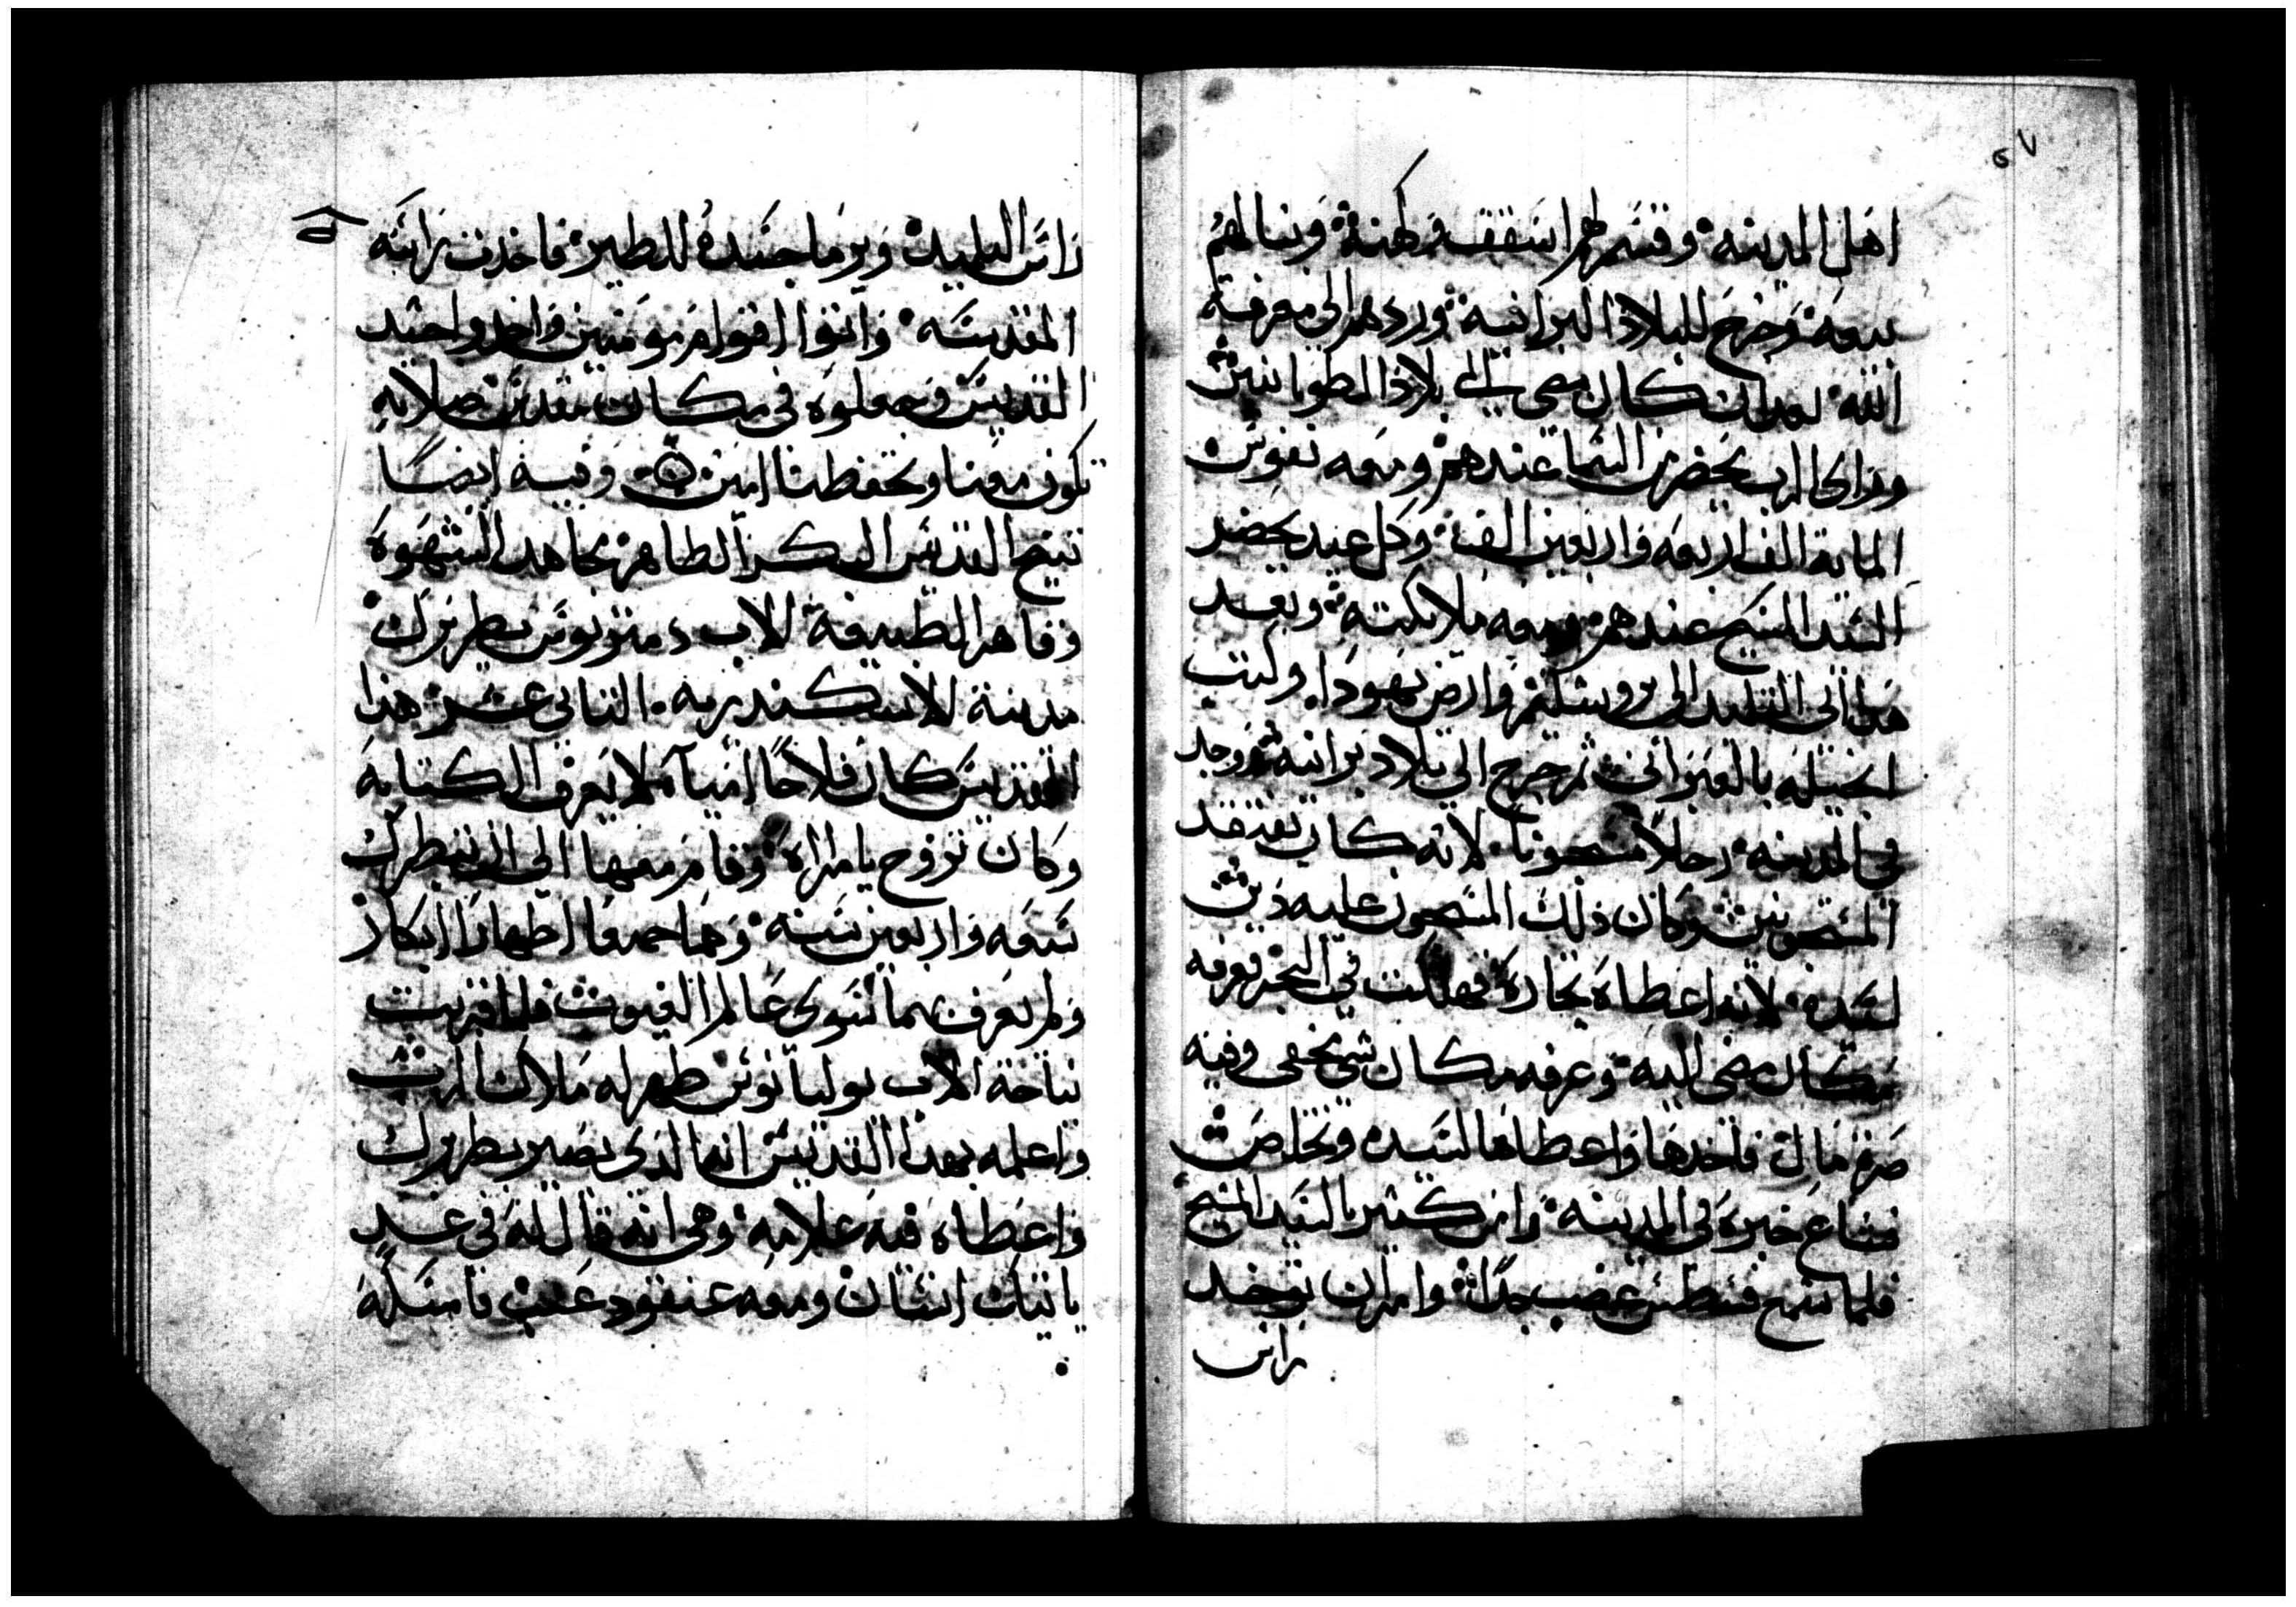 ٥٧
اهل المدينه وقسم لهم اسقف وكهنة وبنا لهم
بيعة وخرج للبلاد البرانية وردهم الى معرفة
الله بعد ان كان مضى الى بلاد المطوبانيين
وراى الرب يحضر من السما عندهم ومعه نفوس
الماية الف اربعه واربعين الف وكل عيد يحضر
السيد المسيح عندهم ومعه ملايكته وبعد
هذا اتى التلميد الى يروشليم وارض يهودا وكتب
انجيله بالعبراني ثم خرج الى بلاد برانيه فوجد
في المدينه رجلا مسجونا لانه كان يفتقد
المسجونين وكان ذلك المسجون عليه دين
لسيده لانه اعطاه تجارة فهلكت في البحر فعرفه
مكان مضى اليه وعرفه مكان شي مخفى وفيه
صرة مال فاخدها واعطاها لسيده وتخلص
فشاع خبره في المدينه وامن كثير بالسيد المسيح
فلما سمع فسطس غضب جدا وامر ان توخد
راس
راس التلميد ويرما جسده للطير فاخدت راسه
المقدسه واتوا اقوام مومنين واخدوا جسد
القديس وجعلوه في مكان مقدس صلاته
تكون معنا وتحفظنا امين وفيه ايضا
تنيح القديس البكر الطاهر مجاهد الشهوة
وقاهر الطبيعة الاب دمتريوس بطريرك
مدينة الاسكندريه الثاني عشر هذا
القديس كان فلاحا اميا لا يعرف الكتابة
وكان تزوج بامراة وقام معها الى ان بطرك
سبعه واربعين سنه وهما جميعا اطهارا ابكار
ولم يعرف بهما سوى عالم الغيوب فلما قربت
نياحة الاب يوليانوس ظهر له ملاك الرب
واعلمه بهذا القديس انه الذي يصير بطريرك
واعطاه فيه علامه وهي انه قال له في غد
ياتيك انسان ومعه عنقود عنب فامسكه